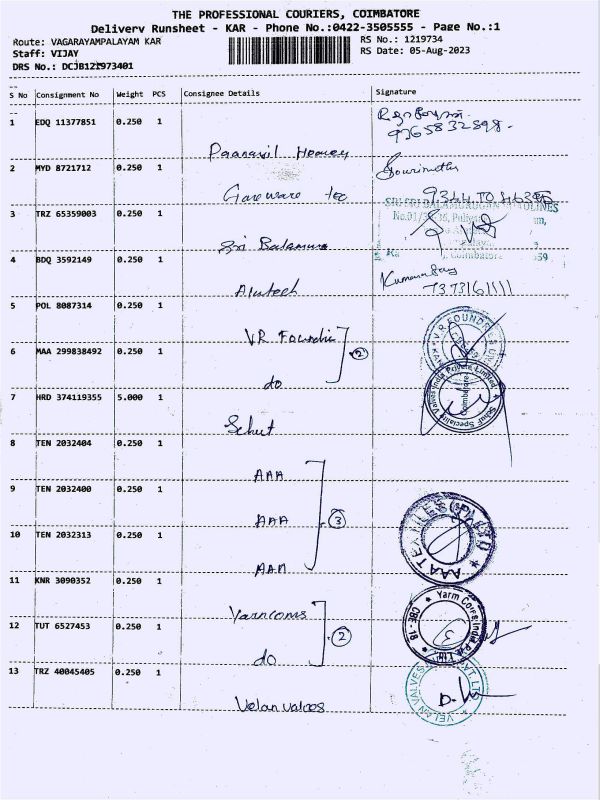 THE PROFESSIONAL COURIERS, COIMBATORE
Delivery Runsheet - KAR - Phone No.:0422-3505555 - Page No.:1
Route: VAGARAYAMPALAYAM KAR
RS No.: 1219734
Staff: VIJAY
RS Date: 05-Aug-2023
DRS No.: DCJB121973401
S No Consignment No Weight PCS Consignee Details Signature
1 EDQ 11377851 0.250 1
9765832898.
2 MYD 8721712 0.250 1
Gareware tec
3 TRZ 65359003 0.250 1
Sri Balamuru
4 BDQ 3592149 0.250 1
Alutech
7373161111
5 POL 8087314 0.250 1
VR Foundri
V.R FOUNDRIES
6 MAA 299838492 0.250 1
2
do
Schuf Speciality Valves India Private Limited
Coimbatore
7 HRD 374119355 5.000 1
Schut
8 TEN 2032404 0.250 1
AAA
9 TEN 2032400 0.250 1
AAA 3
AAA TEXTILES (P) LTD
10 TEN 2032313 0.250 1
AAA
11 KNR 3090352 0.250 1
Yarncoms
Yarm Corns India P.Ltd
CBE - 18
12 TUT 6527453 0.250 1
2
do
13 TRZ 40045405 0.250 1
VELAN VALVES PVT. LTD
Velan valves